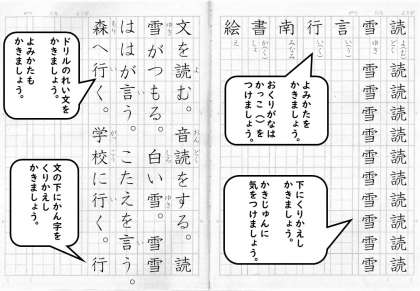 読 読読読読読読読読読読
雪 ゆき 雪雪雪雪雪雪雪雪雪雪
言
行
南 みなみ
書
絵 え
よみかたを
かきましょう。
おくりがなは
かっこ()を
つけましょう。
下にくりかえし
かきましょう。
かきじゅんに
気をつけましょう。
文を読む。音読をする。読
雪がつもる。白い雪。雪雪
ははが言う。こたえを言う。
森へ行く。学校に行く。行
ドリルのれい文を
かきましょう。
よみかたも
かきましょう。
文の下にかん字を
くりかえし
かきましょう。